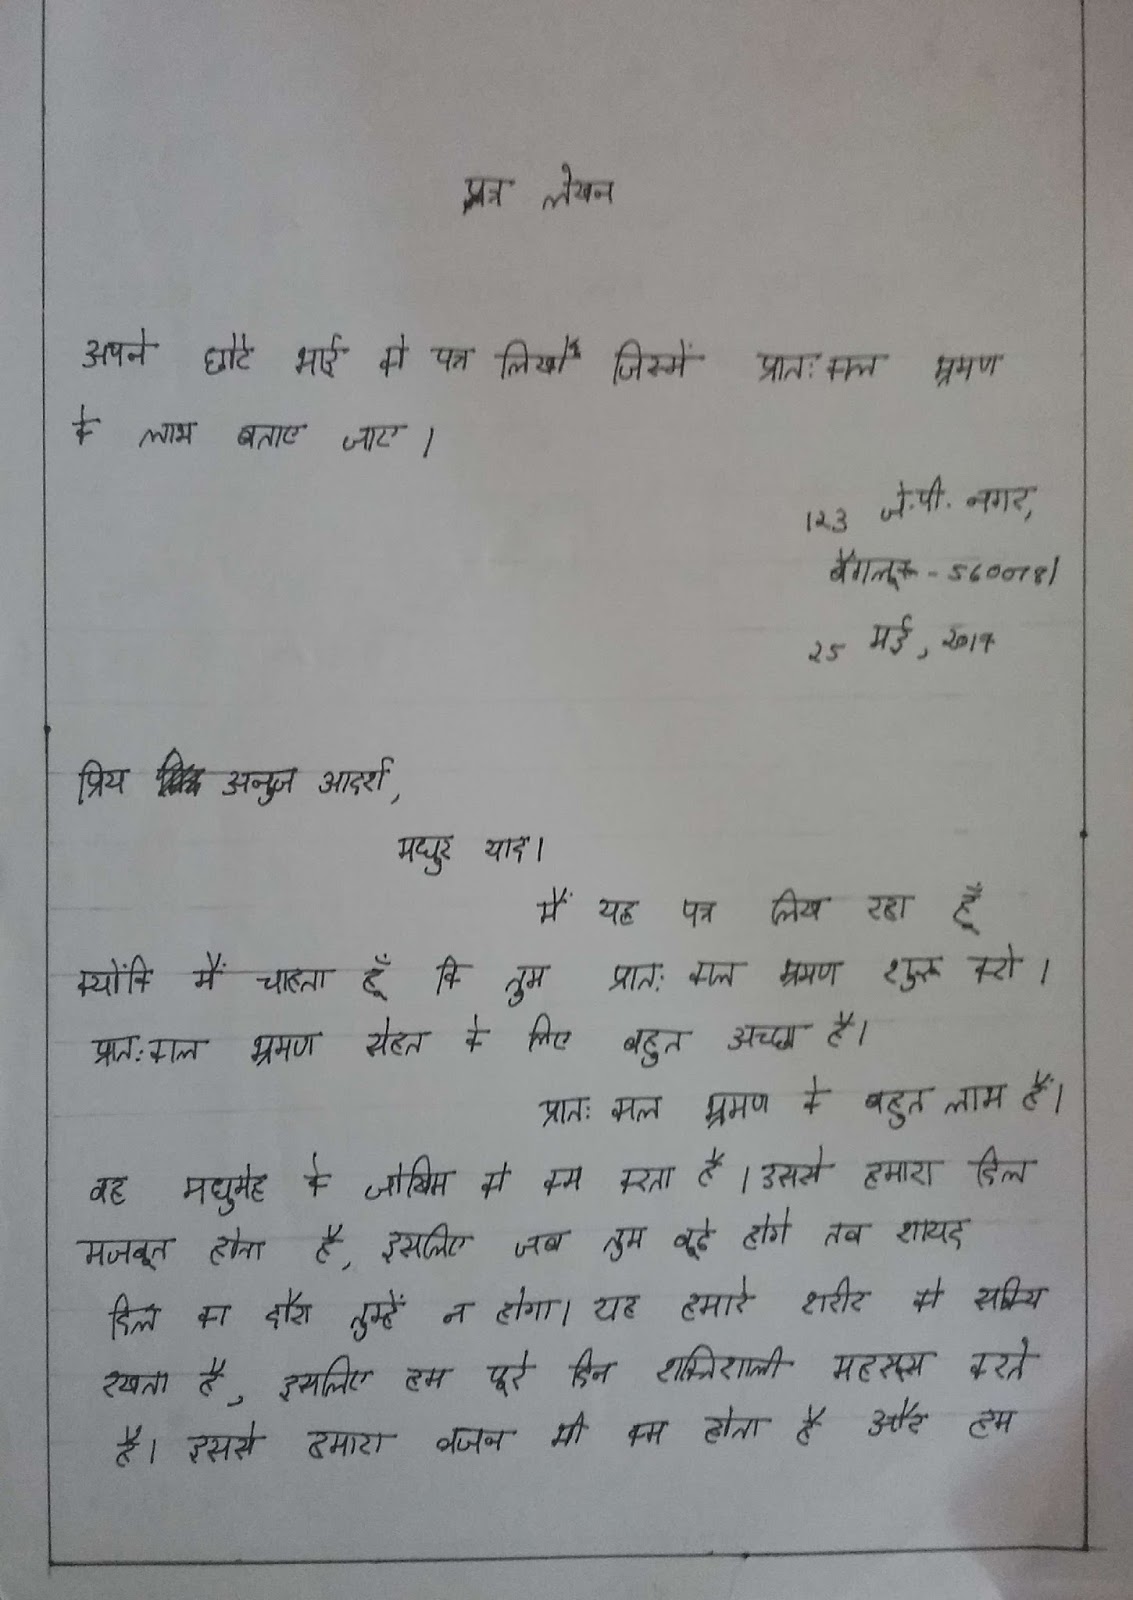 पत्र लेखन
अपने छोटे भाई को पत्र लिखो जिसमें प्रातः काल भ्रमण
के लाभ बताए जाए।
123 जे.पी. नगर,
बैंगलूरू - 560078।
25 मई, 2017
प्रिय अनुज आदर्श,
मधुर याद।
मैं यह पत्र लिख रहा हूँ
क्योंकि मैं चाहता हूँ कि तुम प्रातः काल भ्रमण शुरू करो।
प्रातः काल भ्रमण सेहत के लिए बहुत अच्छा है।
प्रातः काल भ्रमण के बहुत लाभ हैं।
वह मधुमेह के जोखिम को कम करता है। उससे हमारा दिल
मजबूत होता है, इसलिए जब तुम बूढ़े होगे तब शायद
दिल का दौरा तुम्हें न होगा। यह हमारे शरीर को सक्रिय
रखता है, इसलिए हम पूरे दिन शक्तिशाली महसूस करते
है। इससे हमारा वजन भी कम होता है और हम